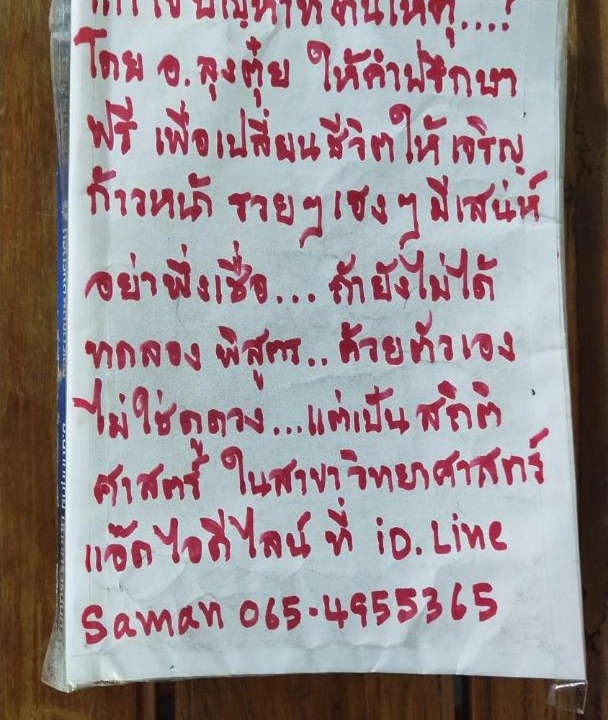 แก้ไขปัญหาที่ต้นเหตุ....?
โดย อ.ลุงตุ๋ย ให้คำปรึกษา
ฟรี เพื่อเปลี่ยนชีวิตให้เจริญ
ก้าวหน้า รวยๆเฮงๆ มีเสน่ห์
อย่าพึ่งเชื่อ... ถ้ายังไม่ได้
ทดลอง พิสูตร.. ด้วยตัวเอง
ไม่ใช่ดูดวง...แต่เป็น สถิติ
ศาสตร์ ในสาขาวิทยาศาสตร์
แอ๊ดไอดีไลน์ ที่ iD. Line
Saman 065-4955365